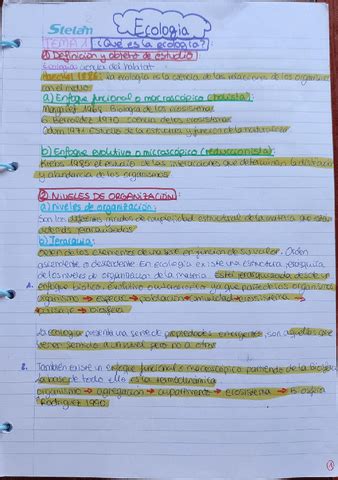 Stelan
Ecología
TEMA 1 ¿Qué es la ecología?:
① Definición y objeto de estudio
Ecología ciencia del hábitat
la ecología es la ciencia de las relaciones de los organismos
con el medio
a) Enfoque funcional o macroscópico (holista):
Margalef 1968 Biología de los ecosistemas
G. Fernández 1970 ciencia de los ecosistemas
Odum 1971 Estudio de la estructura y función de la naturaleza
b) Enfoque evolutivo o microscópico (reduccionista):
Krebs 1985 el estudio de las interacciones que determinan la distribución
y abundancia de los organismos
② NIVELES DE ORGANIZACIÓN:
a) Niveles de organización:
Son los diferentes niveles de complejidad estructural de la materia que están
jerarquizados
b) Jerarquía:
Orden de los elementos de una serie en función de su valor. Orden
ascendente o descendente. En ecología existe una estructura jerárquica
de los niveles de organización de la materia. Está jerarquizada desde el
A. enfoque biótico evolutivo o autoecológico ya que parte de los organismos
organismo → especie → población → comunidad → ecosistema →
→ biosfera
La ecología presenta una serie de propiedades emergentes, son aquellas que
tienen sentido a un nivel pero no a otro
B. También existe un enfoque funcional o macroscópico partiendo de la biosfera
la base de todo ello es la termodinámica
organismo → agregación → → ecosistema → Biosfera
Rodríguez 1990
①